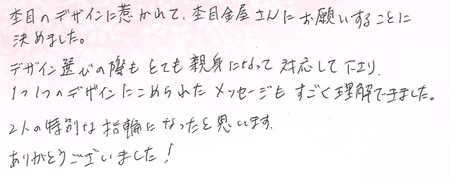 杢目のデザインに惹かれて、杢目金屋さんにお願いすることに
決めました。
デザイン選びの際もとても親身になって対応して下さり、
1つ1つのデザインにこめられたメッセージもすごく理解できました。
2人の特別な指輪になったと思います。
ありがとうございました!